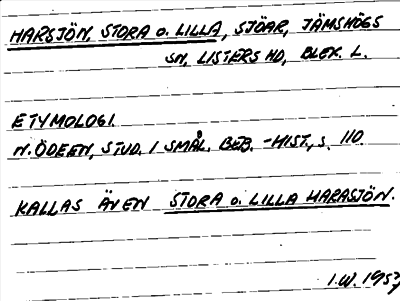 HARSJÖN, STORA o. LILLA, SJÖAR, JÄMSHÖGS
SN, LISTERS HD, BLEK. L.
ETYMOLOGI.
N. ÖDEEN, STUD. I SMÅL. BEB. -HIST., s. 110.
KALLAS ÄVEN STORA o. LILLA HARASJÖN.
I.W. 1957